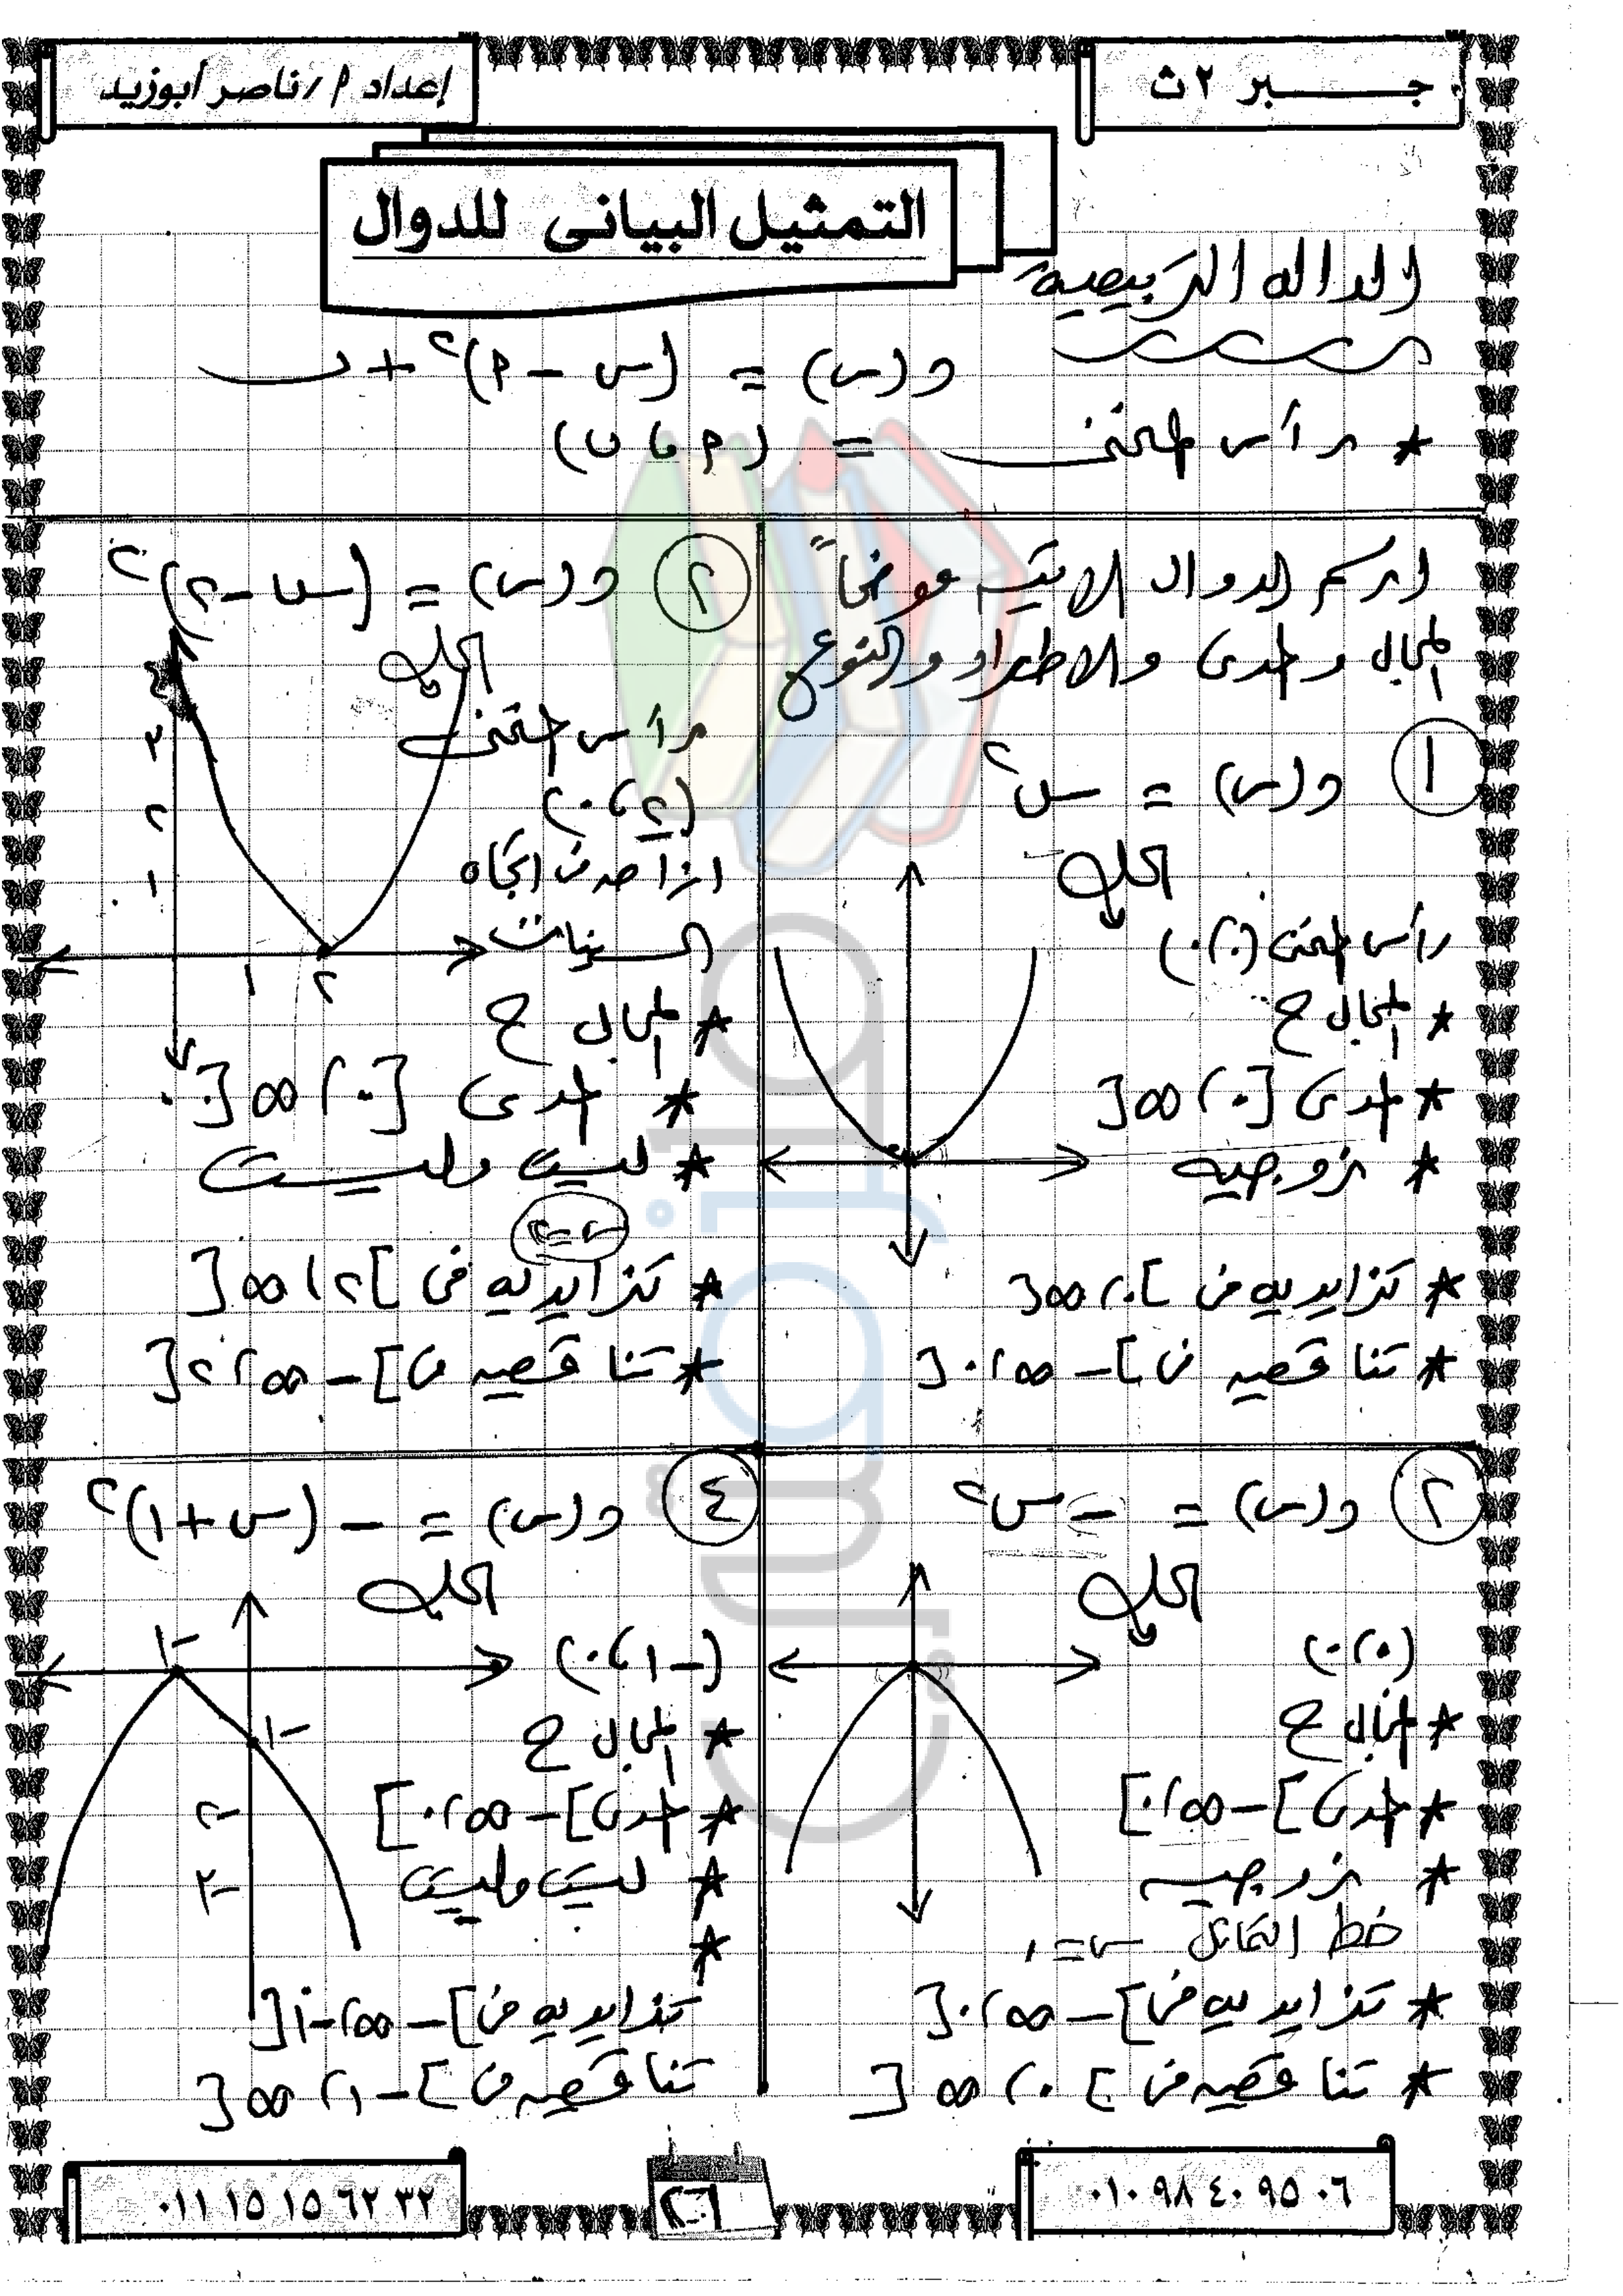 جـــبر ٢ث
إعداد م/ناصر أبوزيد
التمثيل البيانى للدوال
الداله التربيعيه
د(س) = (س - م)² + ن
* رأس المنحنى = (م ، ن)
ارسم الدوال الاتيه موضحاً
المجال والمدى والاطراد والنوع
١ د(س) = س²
الحله
رأس المنحنى (٠،٠)
* المجال ح
* المدى [٠،∞[
* زوجيه
* تزايديه فى ]٠،∞[
* تناقصيه فى ]-∞،٠[
٢ د(س) = (س-٢)²
الحله
رأس المنحنى
(٢،٠)
ازاحه فى اتجاه
السينات
٤
٣
٢
١
١ ٢
* المجال ح
* المدى [٠،∞[
* ليست وليست
س=٢
* تزايديه فى ]٢،∞[
* تناقصيه فى ]-∞،٢[
٢ د(س) = -س²
الحله
(٠،٠)
* المجال ح
* المدى ]-∞،٠]
* زوجيه
خط التماثل س=٠
* تزايديه فى ]-∞،٠[
* تناقصيه فى ]٠،∞[
٤ د(س) = -(س+١)²
الحله
(-١،٠)
-١
-١
-٢
-٣
* المجال ح
* المدى ]-∞،٠]
* ليست وليست
*
تزايديه فى ]-∞،-١[
تناقصيه فى ]-١،∞[
٠١٠ ٩٨ ٤٠ ٩٥ ٠٦
٠١١ ١٥ ١٥ ٦٢ ٣٢